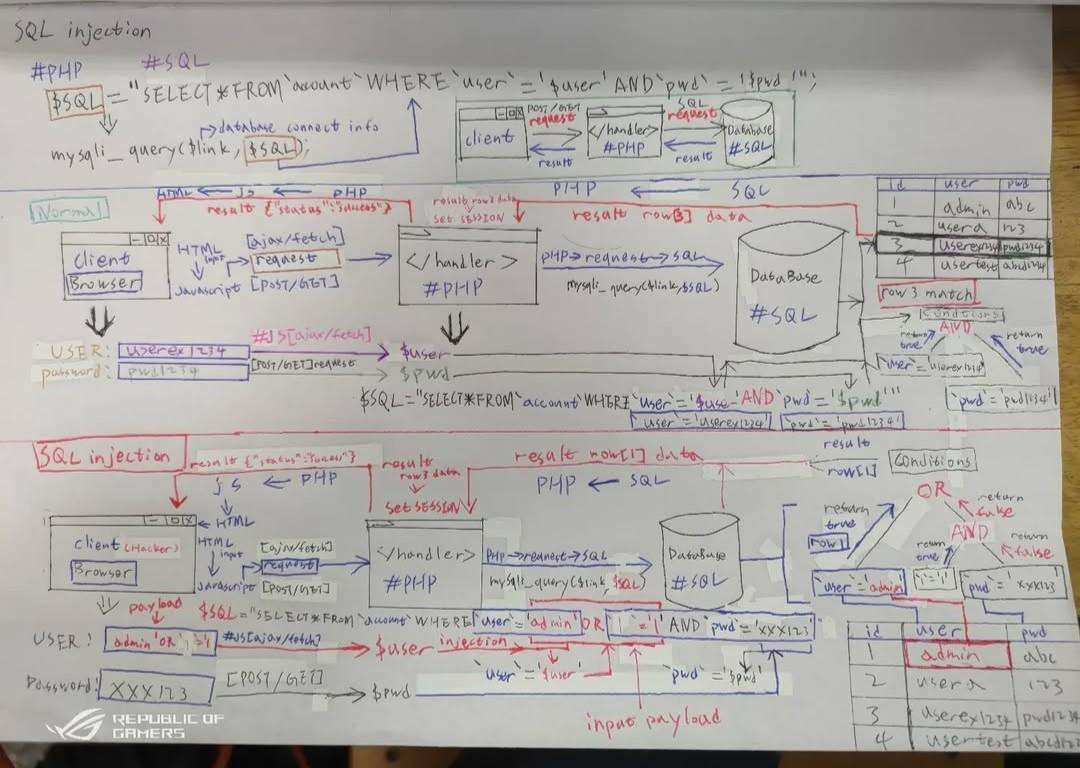 SQL injection
#PHP #SQL
$SQL="SELECT*FROM`account`WHERE`user`='$user'AND`pwd`='$pwd'";
database connect info
mysqli_query($link,$SQL);
client
POST/GET
request
result
</handler>
#PHP
SQL
request
result
DataBase
#SQL
Normal
HTML ← JS ← PHP
result {"status":"sucess"}
result row3 data
set SESSION
PHP ← SQL
result row[3] data
id user pwd
1 admin abc
2 usera 123
3 userex1234 pwd1234
4 usertest abcd1234
row 3 match
client
Browser
HTML
input
Javascript
[ajax/fetch]
request
[POST/GET]
</handler>
#PHP
PHP→request→SQL
mysqli_query($link,$SQL)
DataBase
#SQL
Conditions
AND
return true
return true
`user`='userex1234'
`pwd`='pwd1234'
USER: userex1234
#JS[ajax/fetch]
$user
password: pwd1234
[POST/GET]request
$pwd
$SQL="SELECT*FROM`account`WHERE`user`='$user'AND`pwd`='$pwd'"
`user`='userex1234'
`pwd`='pwd1234'
SQL injection
result {"status":
JS ← PHP
HTML
result row3 data
set SESSION
result row[1] data
PHP ← SQL
result
row[1]
Conditions
OR
return true
row1
return false
AND
return true
return false
`user`='admin'
'1'='1'
pwd='XXX123'
client (Hacker)
Browser
HTML
input
Javascript
[ajax/fetch]
request
[POST/GET]
</handler>
#PHP
PHP→request→SQL
mysqli_query($link,$SQL)
DataBase
#SQL
payload
$SQL="SELECT*FROM`account`WHERE`user`='admin'OR '1'='1'AND`pwd`='XXX123'
USER: admin'OR '1'='1
#JS[ajax/fetch]
$user
injection
`user`='$user'
`pwd`='$pwd'
Password: XXX123
[POST/GET]
$pwd
input payload
id user pwd
1 admin abc
2 usera 123
3 userex1234 pwd1234
4 usertest abcd1234
REPUBLIC OF
GAMERS